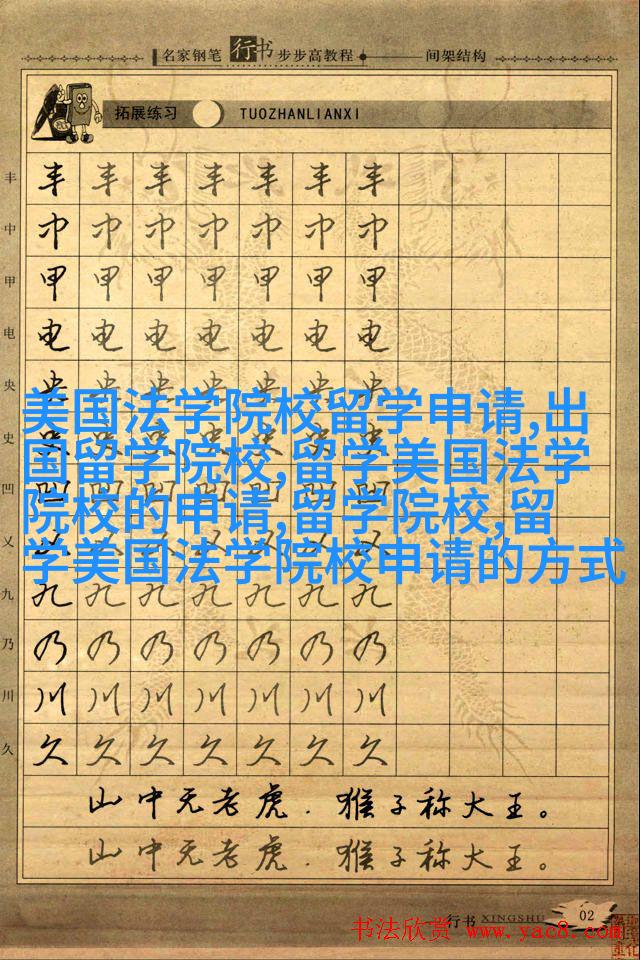 名家钢笔行书步步高教程 间架结构
拓展练习 TUOZHANLIANXI
丰 丰 丰 丰 丰 丰 丰 丰
中 中 中 中 中 中 中 中
甲 甲 甲 甲 甲 甲 甲 甲
电 电 电 电 电 电 电 电
央 央 央 央 央 央 央 央
美国法学院校留学申请,出
史 史 史 史 史 史 史 史
国留学院校,留学美国法学
凹 凹 凹 凹 凹 凹 凹 凹
院校的申请,留学院校,留
义 义 义 义 义 义 义 义
学美国法学院校申请的方式
九 九 九 九 九 九 九 九
乃 乃 乃 乃 乃 乃 乃 乃
川 川 川 川 川 川 川 川
久 久 久 久 久 久 久 久
山中无老虎.猴子称大王。
山中无老虎.猴子称大王。
行书 XINGSHU 02
书法欣赏 www.yac8.com